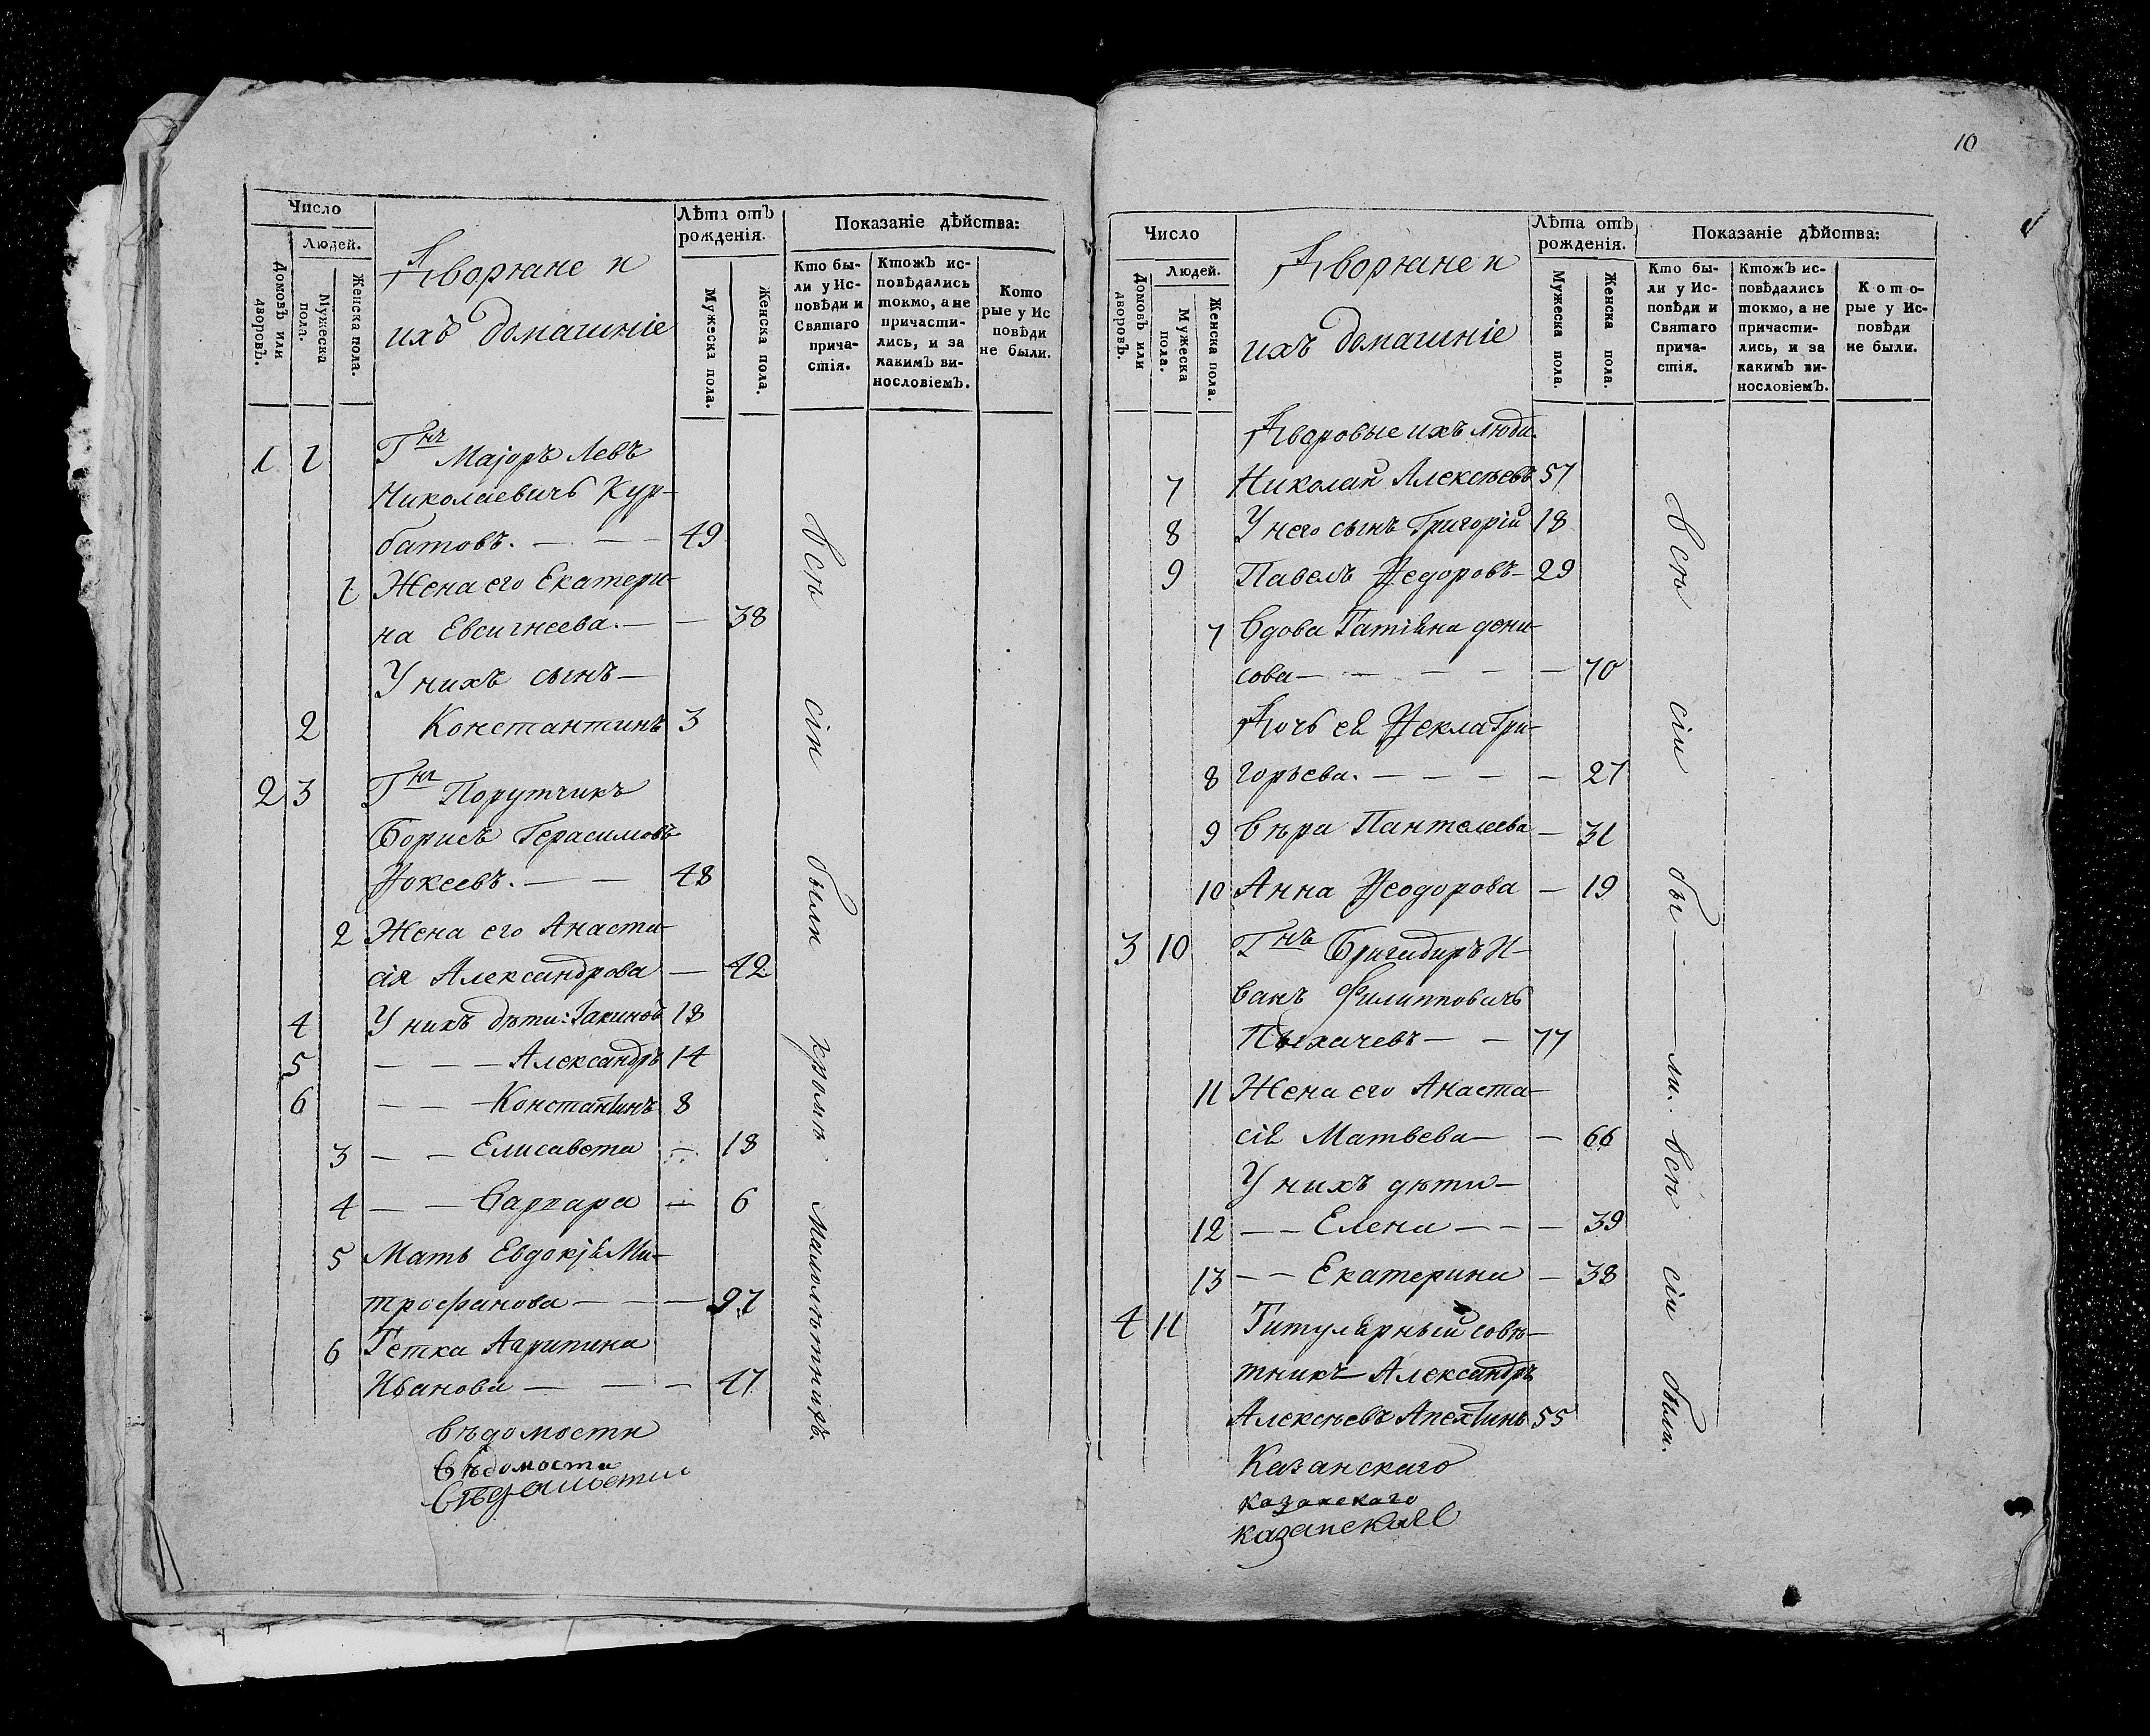 Число
Людей.
Домовъ или дворовъ.
Мужеска пола.
Женска пола.
Дворяне и
ихъ домашніе
Лѣта отъ
рожденія.
Мужеска пола.
Женска пола.
Показаніе дѣйства:
Кто бы-
ли у Ис-
повѣди и
Святаго
прича-
стія.
Ктожъ ис-
повѣдались
токмо, а не
причасти-
лись, и за
какимъ ви-
нословіемъ.
Кото
рые у Ис
повѣди
не были.
1 1 Гнъ Маjоръ Левъ
Николаевичъ Кур-
батовъ. — — 49
1 Жена его Екатери-
на Евсигнеева. — — 38
У нихъ сынъ —
2 Константинъ 3
2 3 Гнъ Порутчикъ
Борисъ Герасимовъ
Ѳокеевъ. — — 48
2 Жена его Анаста-
сія Александрова — 42
4 У нихъ дѣти: Іакинѳъ 18
5 — — — Александръ 14
6 — — Константинъ 8
3 — — Елисавета — 18
4 — — Варвара — 6
5 Мать Евдокjя Ми-
трофанова — — — 97
6 Тетка Агрипина
Иванова — — — 47
всѣ сіи были кромѣ малолѣтнихъ.
вѣдомости
вѣдомости
вѣдомости
10
Число
Людей.
Домовъ или дворовъ.
Мужеска пола.
Женска пола.
Дворяне и
ихъ домашніе
Лѣта отъ
рожденія.
Мужеска пола.
Женска пола.
Показаніе дѣйства:
Кто бы-
ли у Ис-
повѣди и
Святаго
прича-
стія.
Ктожъ ис-
повѣдались
токмо, а не
причасти-
лись, и за
какимъ ви-
нословіемъ.
Кото-
рые у Ис-
повѣди
не были.
Дворовые ихъ люди.
7 Николай Алексѣевъ 57
8 У него сынъ Григорій 18
9 Павелъ Ѳедоровъ — 29
7 Вдова Татіяна дени-
сова — — — — — 70
Дочь ея Ѳекла Гри-
8 горьева. — — — — 27
9 Вѣра Пантелеева — 31
10 Анна Ѳеодорова — 19
3 10 Гнъ Бригадиръ И-
ванъ Филипповичъ
Пыхачевъ — — 77
11 Жена его Анаста-
сія Матвѣева — — 66
У нихъ дѣти —
12 — — Елена — — — 39
13 — — Екатерина — 38
4 11 Титулярный совѣ-
тникъ — Александръ
Алексѣевъ Апехтинъ 55
всѣ сіи бы — ли. всѣ сіи были.
Казанскаго
казанскаго
казанская